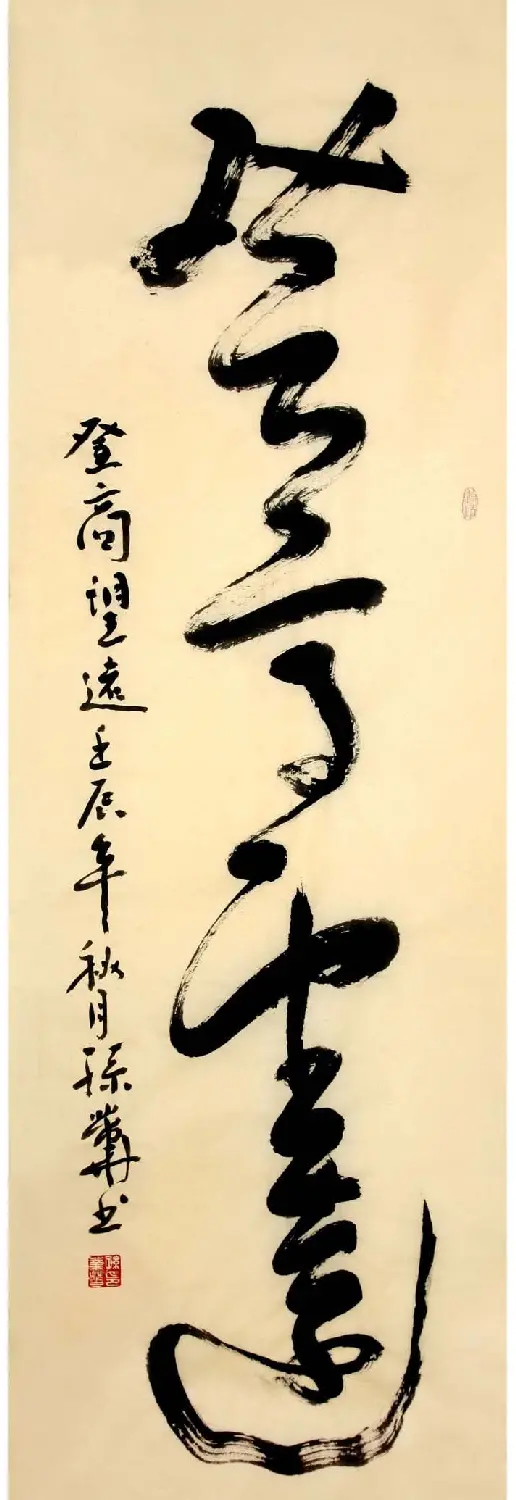 登高望遠
登高望遠壬辰年秋月孫书